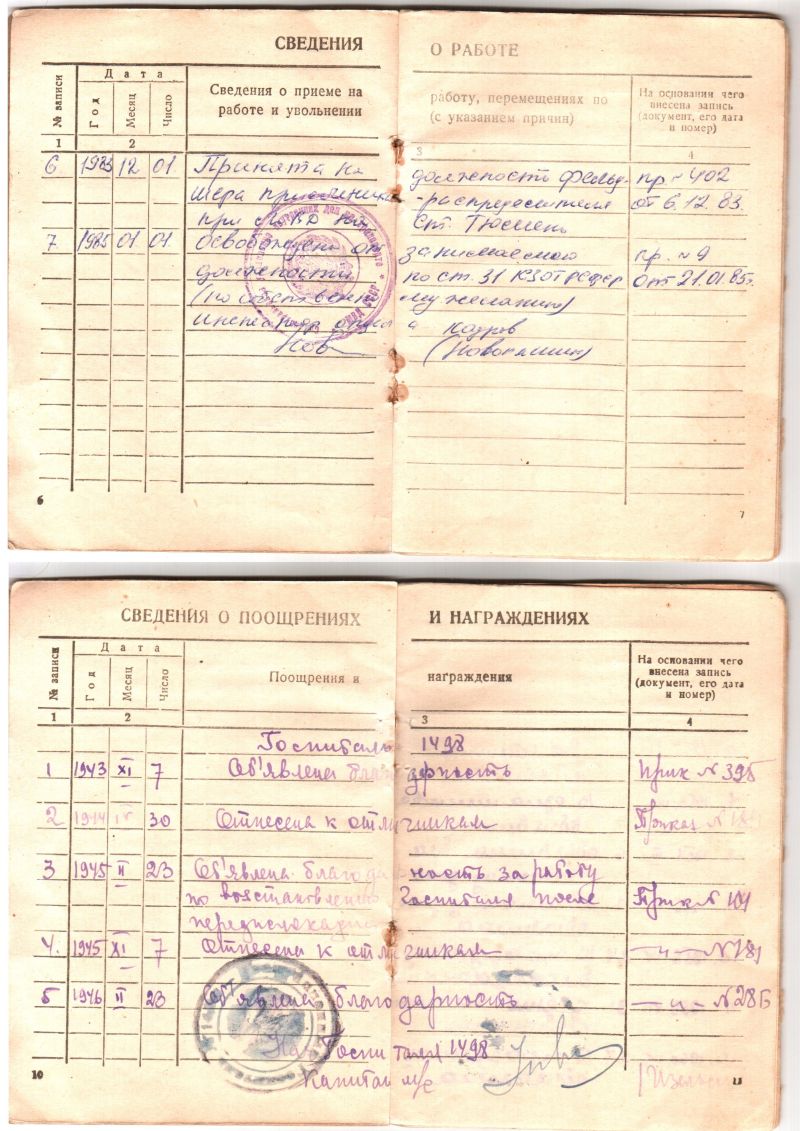 СВЕДЕНИЯ О РАБОТЕ
№ записи
Дата
Год
Месяц
Число
Сведения о приеме на работу, перемещениях по
работе и увольнении (с указанием причин)
На основании чего
внесена запись
(документ, его дата
и номер)
1 2 3 4
6 1983 12 01 Принята на должность фельд- пр. № 402
шера приемника -распределителя от 6.12.83
при ЛОВД на ст. Тюмень
7 1985 01 01 Освобождена от занимаемой пр. № 9
должности по ст. 31 КЗОТ РСФСР от 21.01.85г.
(по собственному желанию)
Инспектор
6 7
СВЕДЕНИЯ О ПООЩРЕНИЯХ И НАГРАЖДЕНИЯХ
№ записи
Дата
Год
Месяц
Число
Поощрения и награждения
На основании чего
внесена запись
(документ, его дата
и номер)
1 2 3 4
Госпиталь 1498
1 1943 XI 7 Об'явлена благодарность Прик №
2 1944 30 Отнесена к отличникам Приказ №
3 1945 II 23 Об'явлена благодарность за работу
по восстановлению Госпиталя после Прик №
передислокации
4. 1945 XI 7 Отнесена к отличникам —„— № 181
5 1946 II 23 Об'явлена благодарность —„— №
Нач Госпиталя 1498
Капитан м/с
10 11